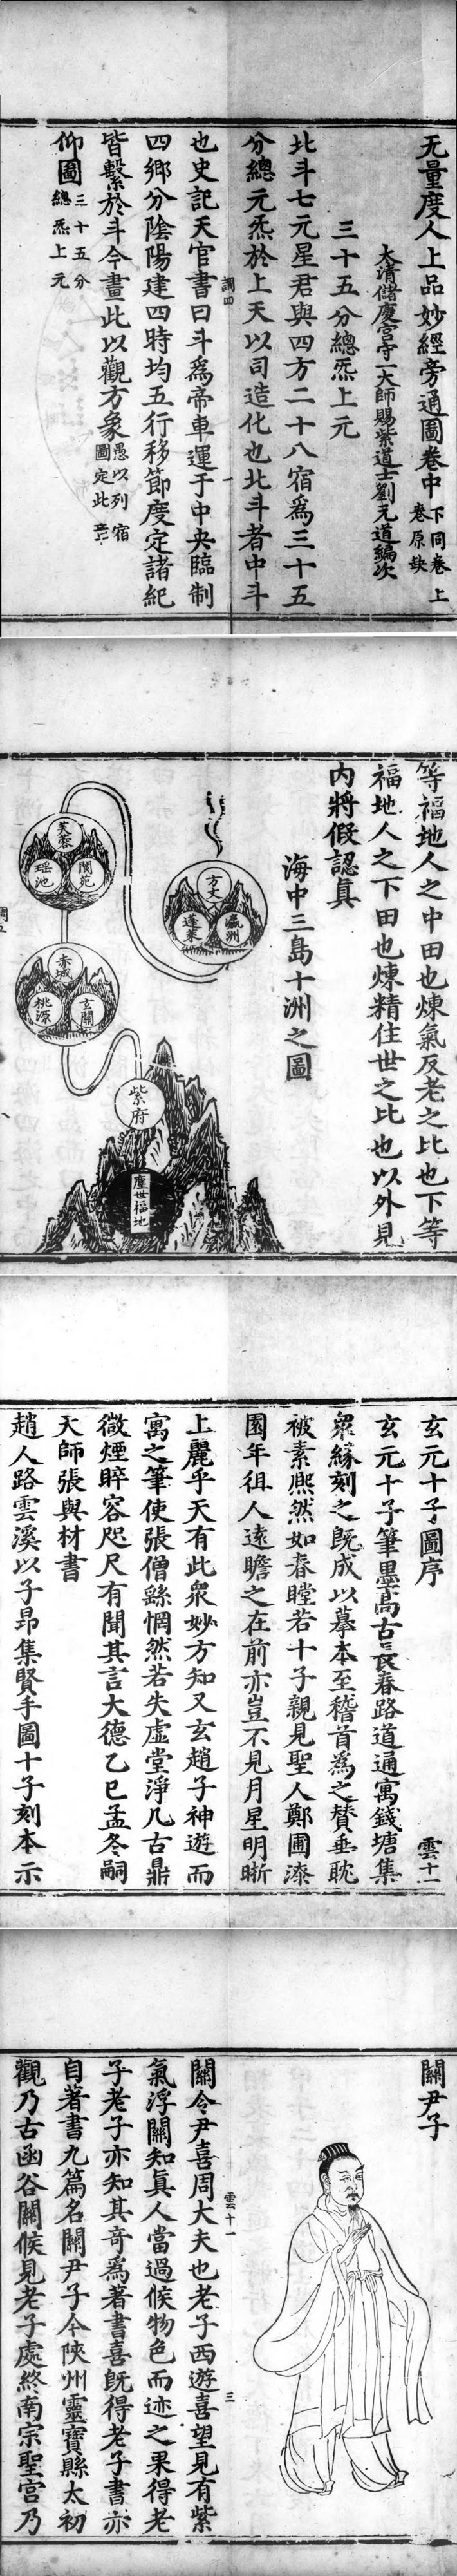 无量度人上品妙經旁通圖卷中 下同卷 上卷原缺
太清儲慶宮守一大師賜紫道士劉元道編次
三十五分總炁上元
北斗七元星君與四方二十八宿為三十五
分總元炁於上天以司造化也北斗者中斗
調四
一
也史記天官書曰斗為帝車運于中央臨制
四鄉分陰陽建四時均五行移節度定諸紀
皆繫於斗今畫此以觀方象 愚以列宿圖定此
仰圖 三十五分總炁上元
等福地人之中田也煉氣反老之比也下等
福地人之下田也煉精住世之比也以外見
內將假認真
海中三島十洲之圖
方丈
瀛洲
蓬萊
芙蓉
閬苑
瑤池
赤城
玄關
桃源
紫府
塵世福地
玄元十子圖序
雲十一
玄元十子筆墨高古長春路道通寓錢塘集
衆緣刻之既成以摹本至稽首為之贊垂眈
被素熙然如春瞠若十子親見聖人鄭圃漆
園年徂人遠瞻之在前亦豈不見月星明晣
上麗乎天有此衆妙方知又玄趙子神遊而
寓之筆使張僧繇惘然若失虛堂淨几古鼎
微煙睟容咫尺有聞其言大德乙巳孟冬嗣
天師張與材書
趙人路雲溪以子昂集賢手圖十子刻本示
關尹子
雲十一
三
關令尹喜周大夫也老子西遊喜望見有紫
氣浮關知真人當過候物色而迹之果得老
子老子亦知其奇為著書喜既得老子書亦
自著書九篇名關尹子今陝州靈寶縣太初
觀乃古函谷關候見老子處終南宗聖宮乃